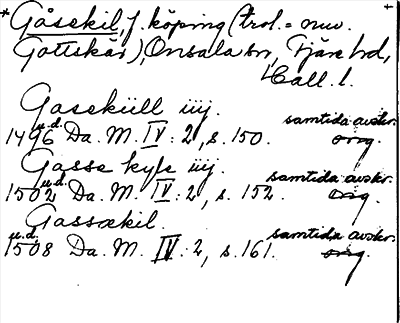 * Gåsekil, f. köping (trol. = nuv. +
Gottskär), Onsala sn, Fjäre hd,
Hall. l.
Gaseküll iiij.
u.d. samtida avskr.
1496 Da. M. IV: 2, s. 150. orig.
Gasse kyle iiij.
u.d. samtida avskr.
1502 Da. M. IV: 2, s. 152. orig.
Gassækil.
u.d. samtida avskr.
1508 Da. M. IV: 2, s. 161. orig.